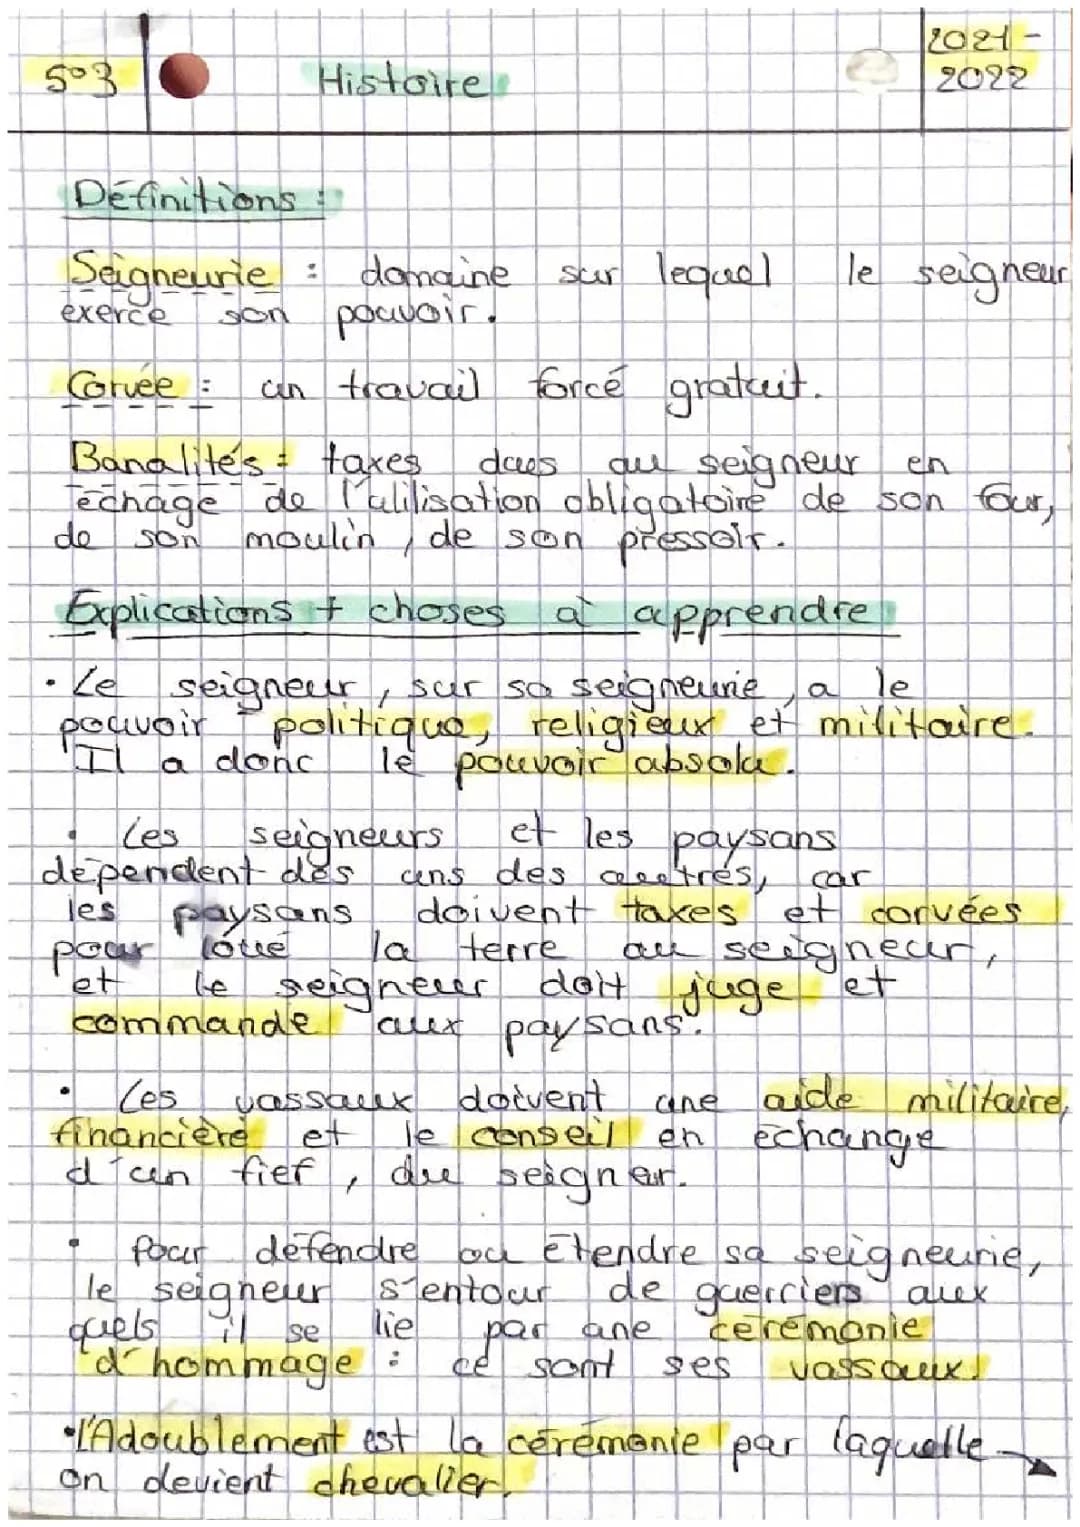 5°3 Histoire 2021-
2022
Définitions :
Seigneurie : domaine sur lequel le seigneur
exerce son pouvoir.
Corvée : un travail forcé gratuit.
Banalités : taxes dues au seigneur en
échage de l'ulilisation obligatoire de son four,
de son moulin, de son pressoir.
Explications + choses à apprendre
• Le seigneur, sur sa seigneurie, a le
pouvoir politique, religieux et militaire.
Il a donc le pouvoir absolu.
• Les seigneurs et les paysans
dépendent des uns des autres, car
les paysans doivent taxes et corvées
pour loué la terre au seigneur,
et le seigneur doit juge et
commande aux paysans.
• Les vassaux doivent une aide militaire,
financière et le conseil en échange
d'un fief, du seigneur.
• Pour défendre ou étendre sa seigneurie,
le seigneur s'entour de guerriers aux
quels il se lie par une cérémonie
d'hommage : ce sont ses vassaux.
• l'Adoublement est la cérémonie par laquelle
on devient chevalier.